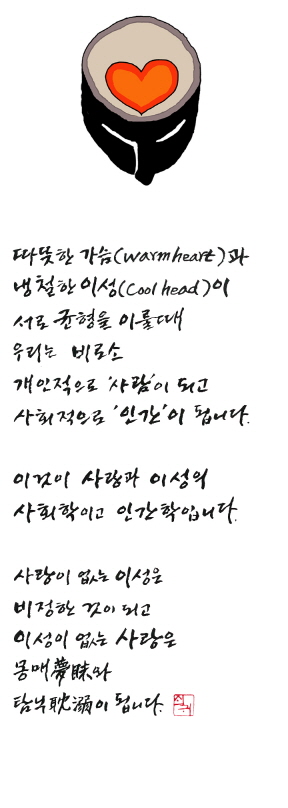 따뜻한 가슴(warm heart)과
냉철한 이성(Cool head)이
서로 균형을 이룰 때
우리는 비로소
개인적으로 '사람'이 되고
사회적으로 '인간'이 됩니다.
이것이 사랑과 이성의
사회학이고 인간학입니다.
사랑이 없는 이성은
비정한 것이 되고
이성이 없는 사랑은
몽매夢昧와
탐닉耽溺이 됩니다.